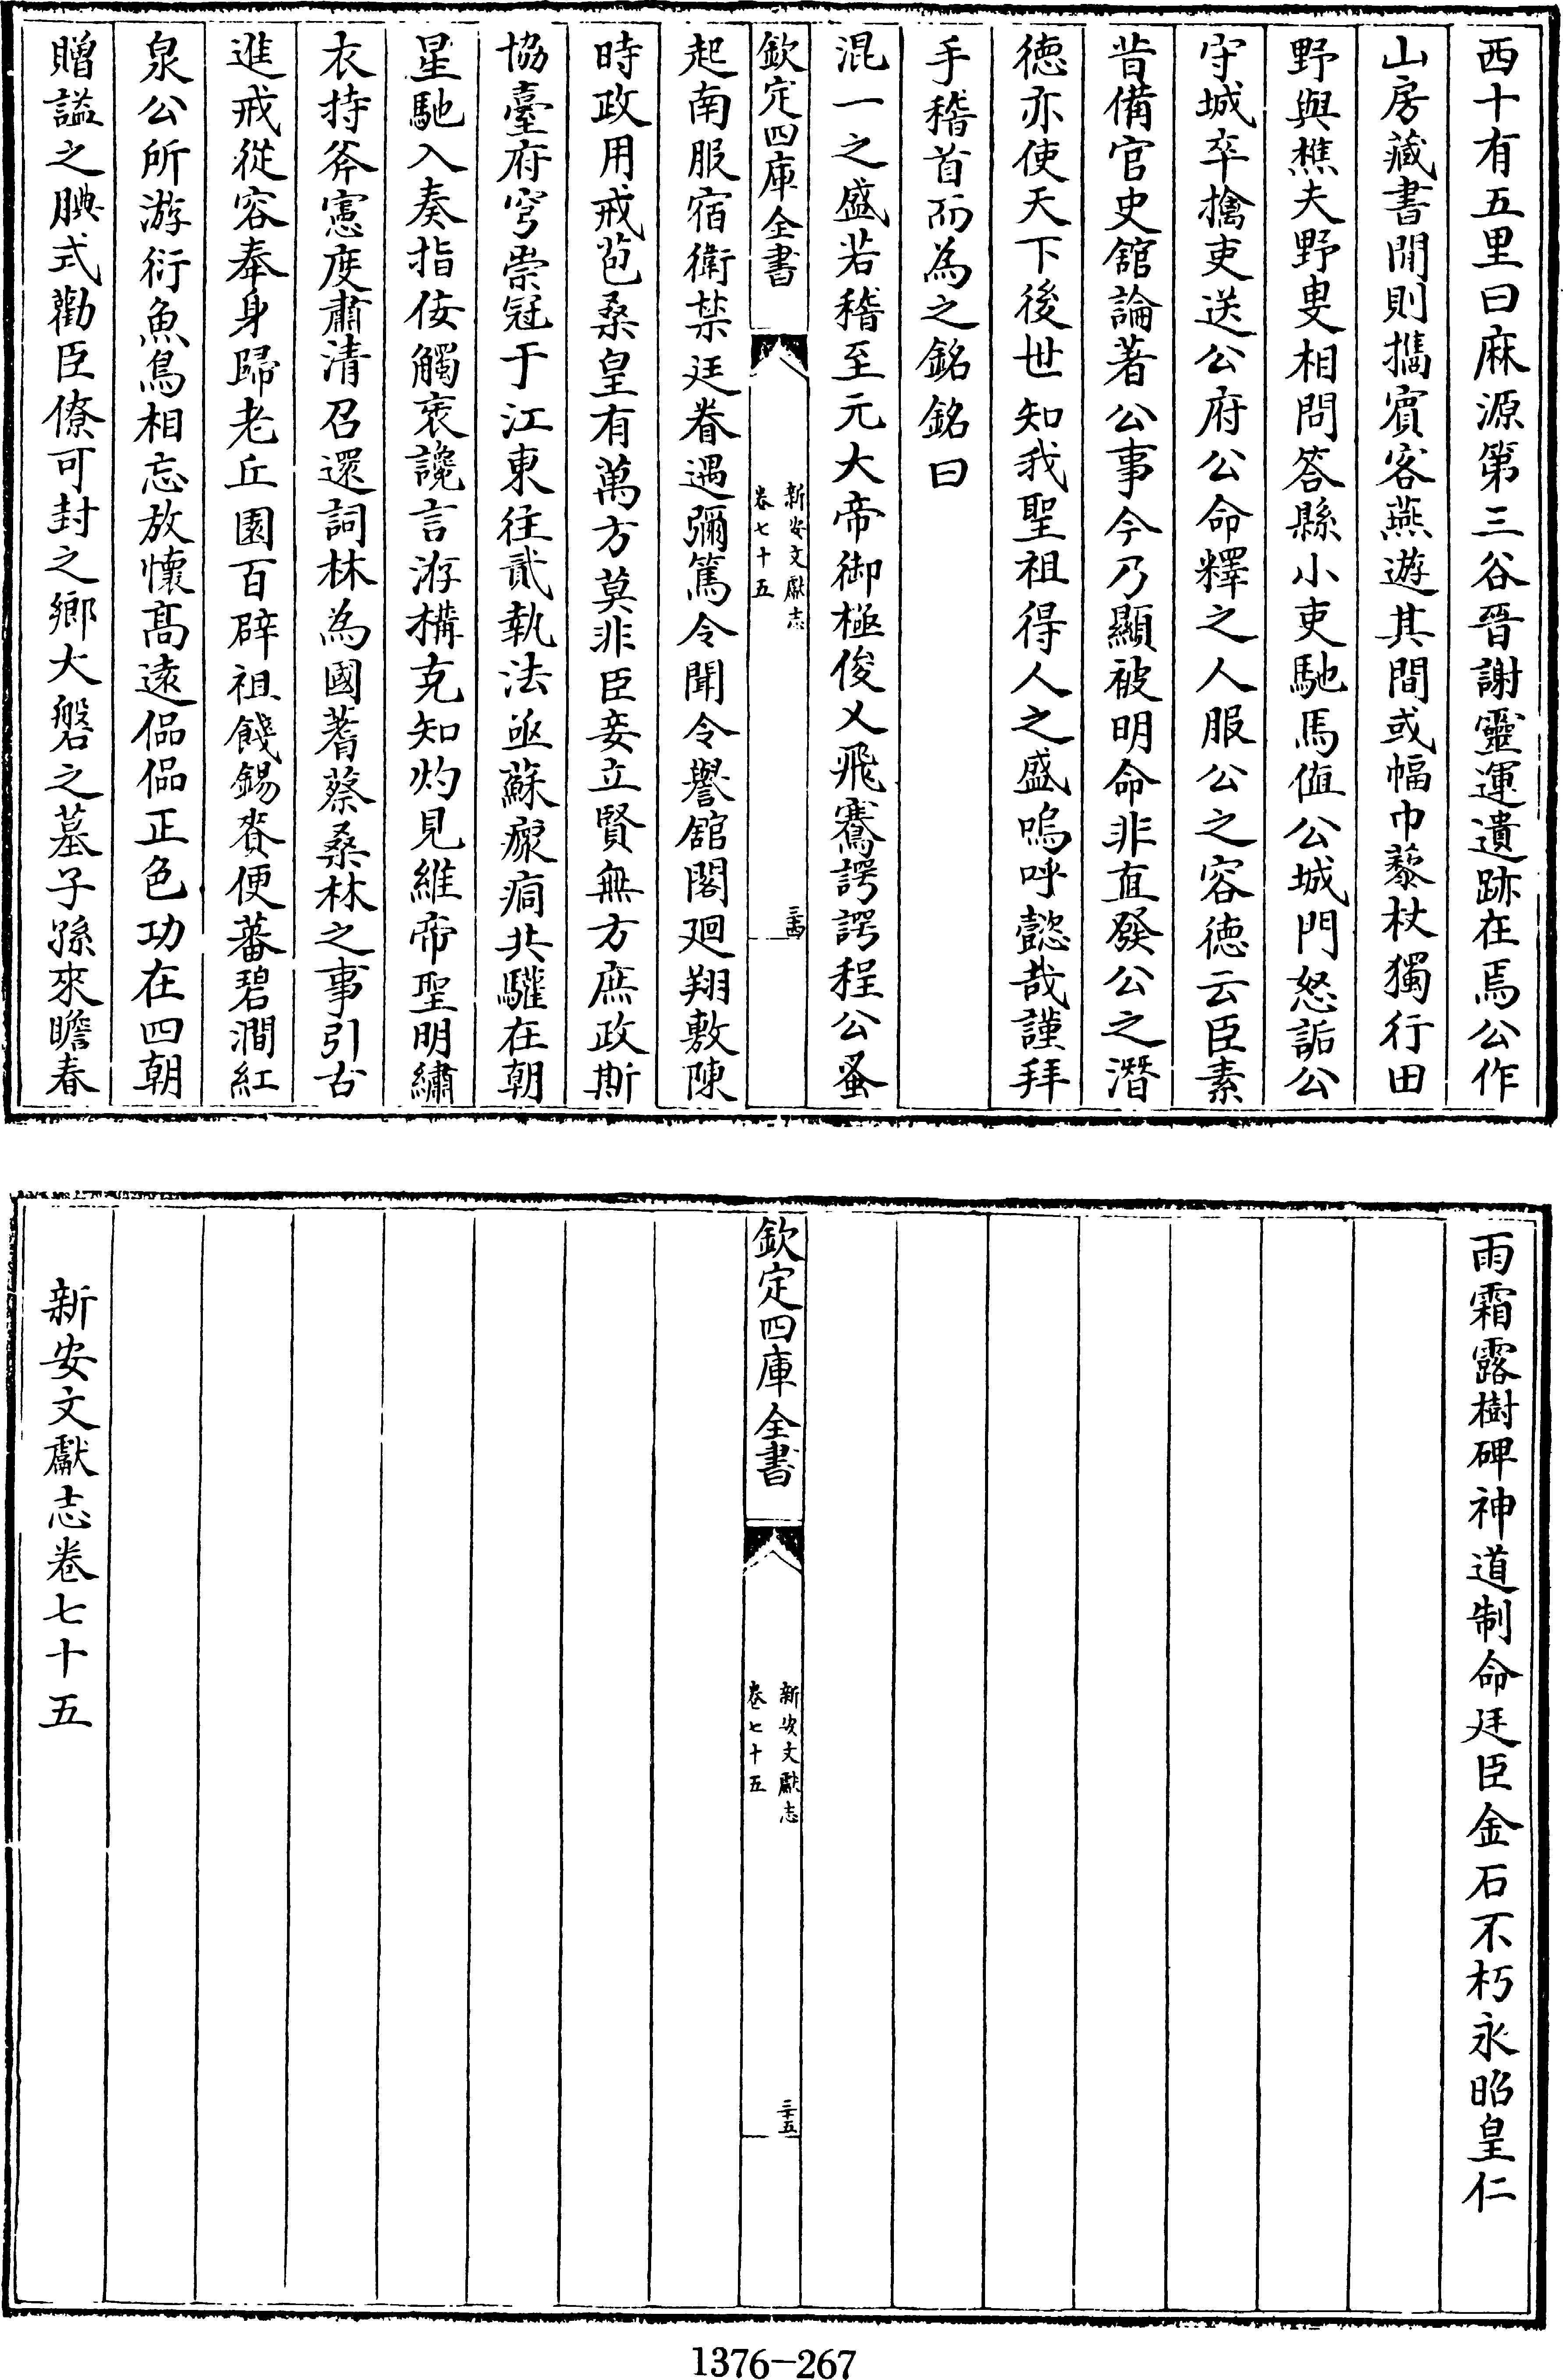 西十有五里曰麻源第三谷晉謝靈運遺跡在焉公作
山房藏書閒則攜賓客燕遊其間或幅巾藜杖獨行田
野與樵夫野叟相問答縣小吏馳馬值公城門怒詬公
守城卒擒吏送公府公命釋之人服公之容徳云臣素
昔備官史舘論著公事今乃顯被明命非直發公之潛
徳亦使天下後世知我聖祖得人之盛嗚呼懿哉謹拜
手稽首而為之銘銘曰
混一之盛若稽至元大帝御極俊乂飛騫諤諤程公蚤
欽定四庫全書
新安文獻志
卷七十五
三十四
起南服宿衛禁廷眷遇彌篤令聞令譽舘閣廻翔敷陳
時政用戒苞桑皇有萬方莫非臣妾立賢無方庶政斯
協臺府穹崇冠于江東往貳執法亟蘇瘝痌共驩在朝
星馳入奏指佞觸衺讒言洊構克知灼見維帝聖明繡
衣持斧憲度肅清召還詞林為國蓍蔡桑林之事引古
進戒從容奉身歸老丘園百辟祖餞錫賚便蕃碧澗紅
泉公所游衍魚鳥相忘放懷髙遠偘偘正色功在四朝
贈謚之腆式勸臣僚可封之鄉大磐之墓子孫來瞻春
雨霜露樹碑神道制命廷臣金石不朽永昭皇仁
欽定四庫全書
新安文獻志
卷七十五
三十五
新安文獻志卷七十五
1376-267